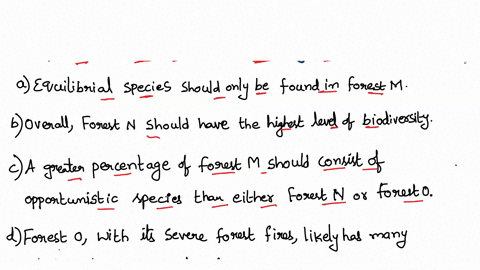 a) Equilibrial species should only be found in forest M.
b) Overall, Forest N should have the highest level of biodiversity.
c) A greater percentage of forest M should consist of
opportunistic species than either Forest N or Forest O.
d) Forest O, with its severe forest fires, likely has many